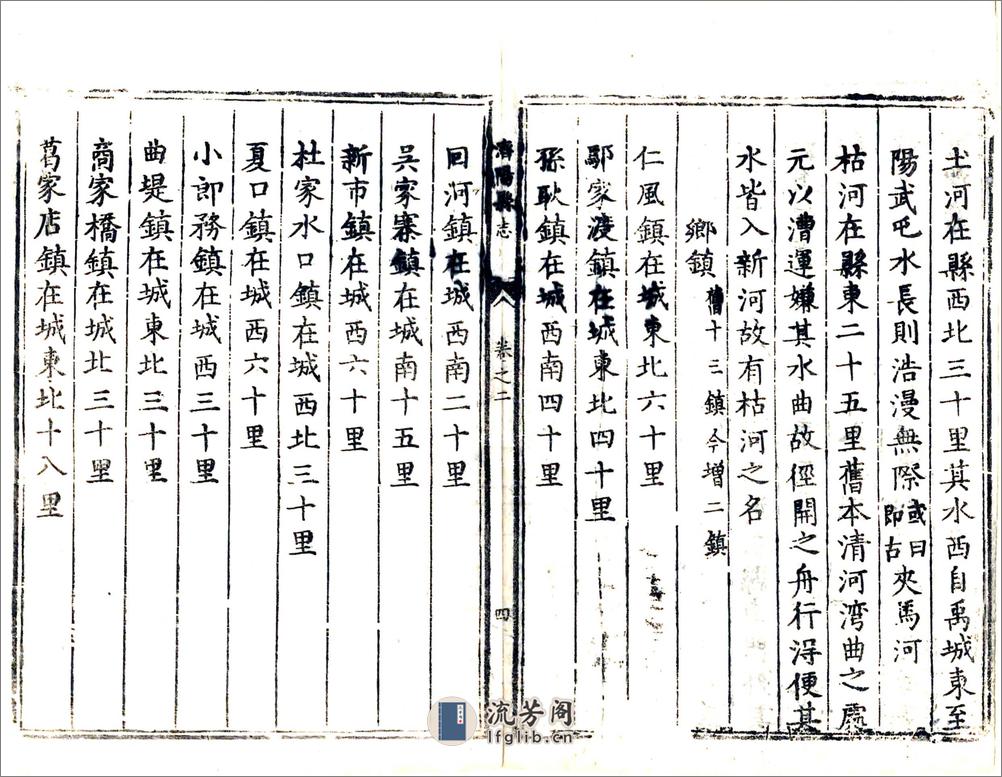 土河在縣西北三十里其水西自禹城東至
陽武屯水長則浩漫無際或曰即古夾馬河
枯河在縣東二十五里舊本清河湾曲之處
元以漕運嫌其水曲故徑開之舟行淂便其
水皆入新河故有枯河之名
鄉鎮舊十三鎮今增二鎮
仁風鎮在城東北六十里
鄢家渡鎮在城東北四十里
孫耿鎮在城西南四十里
濟陽縣志 卷之二 四
回河鎮在城西南二十里
吳家寨鎮在城南十五里
新市鎮在城西六十里
杜家水口鎮在城西北三十里
夏口鎮在城西六十里
小郎務鎮在城西三十里
曲堤鎮在城東北三十里
商家橋鎮在城北三十里
葛家店鎮在城東北十八里
流芳阁
lfglib.cn